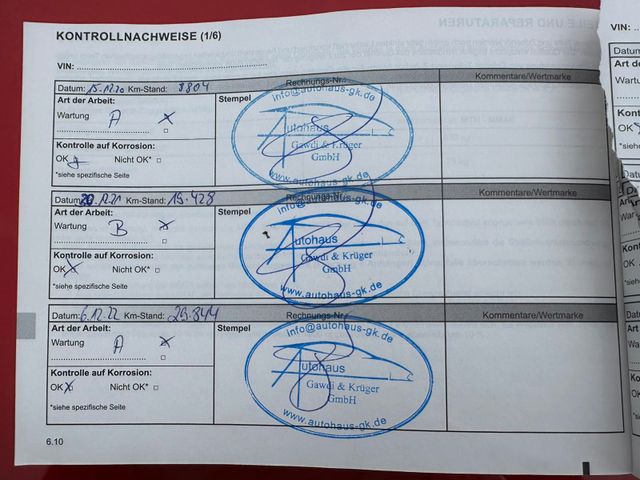 KONTROLLNACHWEISE (1/6)
VIN:
Datum: 15.12.20 Km-Stand: 9804 Rechnungs-Nr.: Kommentare/Wertmarke
Art der Arbeit: Stempel
Wartung A x
Kontrolle auf Korrosion:
OK x Nicht OK* □
*siehe spezifische Seite
info@autohaus-gk.de
Autohaus
Gawdi & Krüger
GmbH
www.autohaus-gk.de
Datum: .12.21 Km-Stand: 19.428 Rechnungs-Nr. Kommentare/Wertmarke
Art der Arbeit: Stempel
Wartung B x
Kontrolle auf Korrosion:
OK x Nicht OK* □
*siehe spezifische Seite
Autohaus
Gawdi & Krüger
GmbH
www.autohaus-gk.de
Datum: 6.12.22 Km-Stand: 29.844 Rechnungs-Nr. Kommentare/Wertmarke
Art der Arbeit: Stempel
Wartung A x
Kontrolle auf Korrosion:
OK x Nicht OK* □
*siehe spezifische Seite
info@autohaus-gk.de
Autohaus
Gawdi & Krüger
GmbH
www.autohaus-gk.de
6.10
VIN:
Datum
Art der
Wartu
OK
*siehe